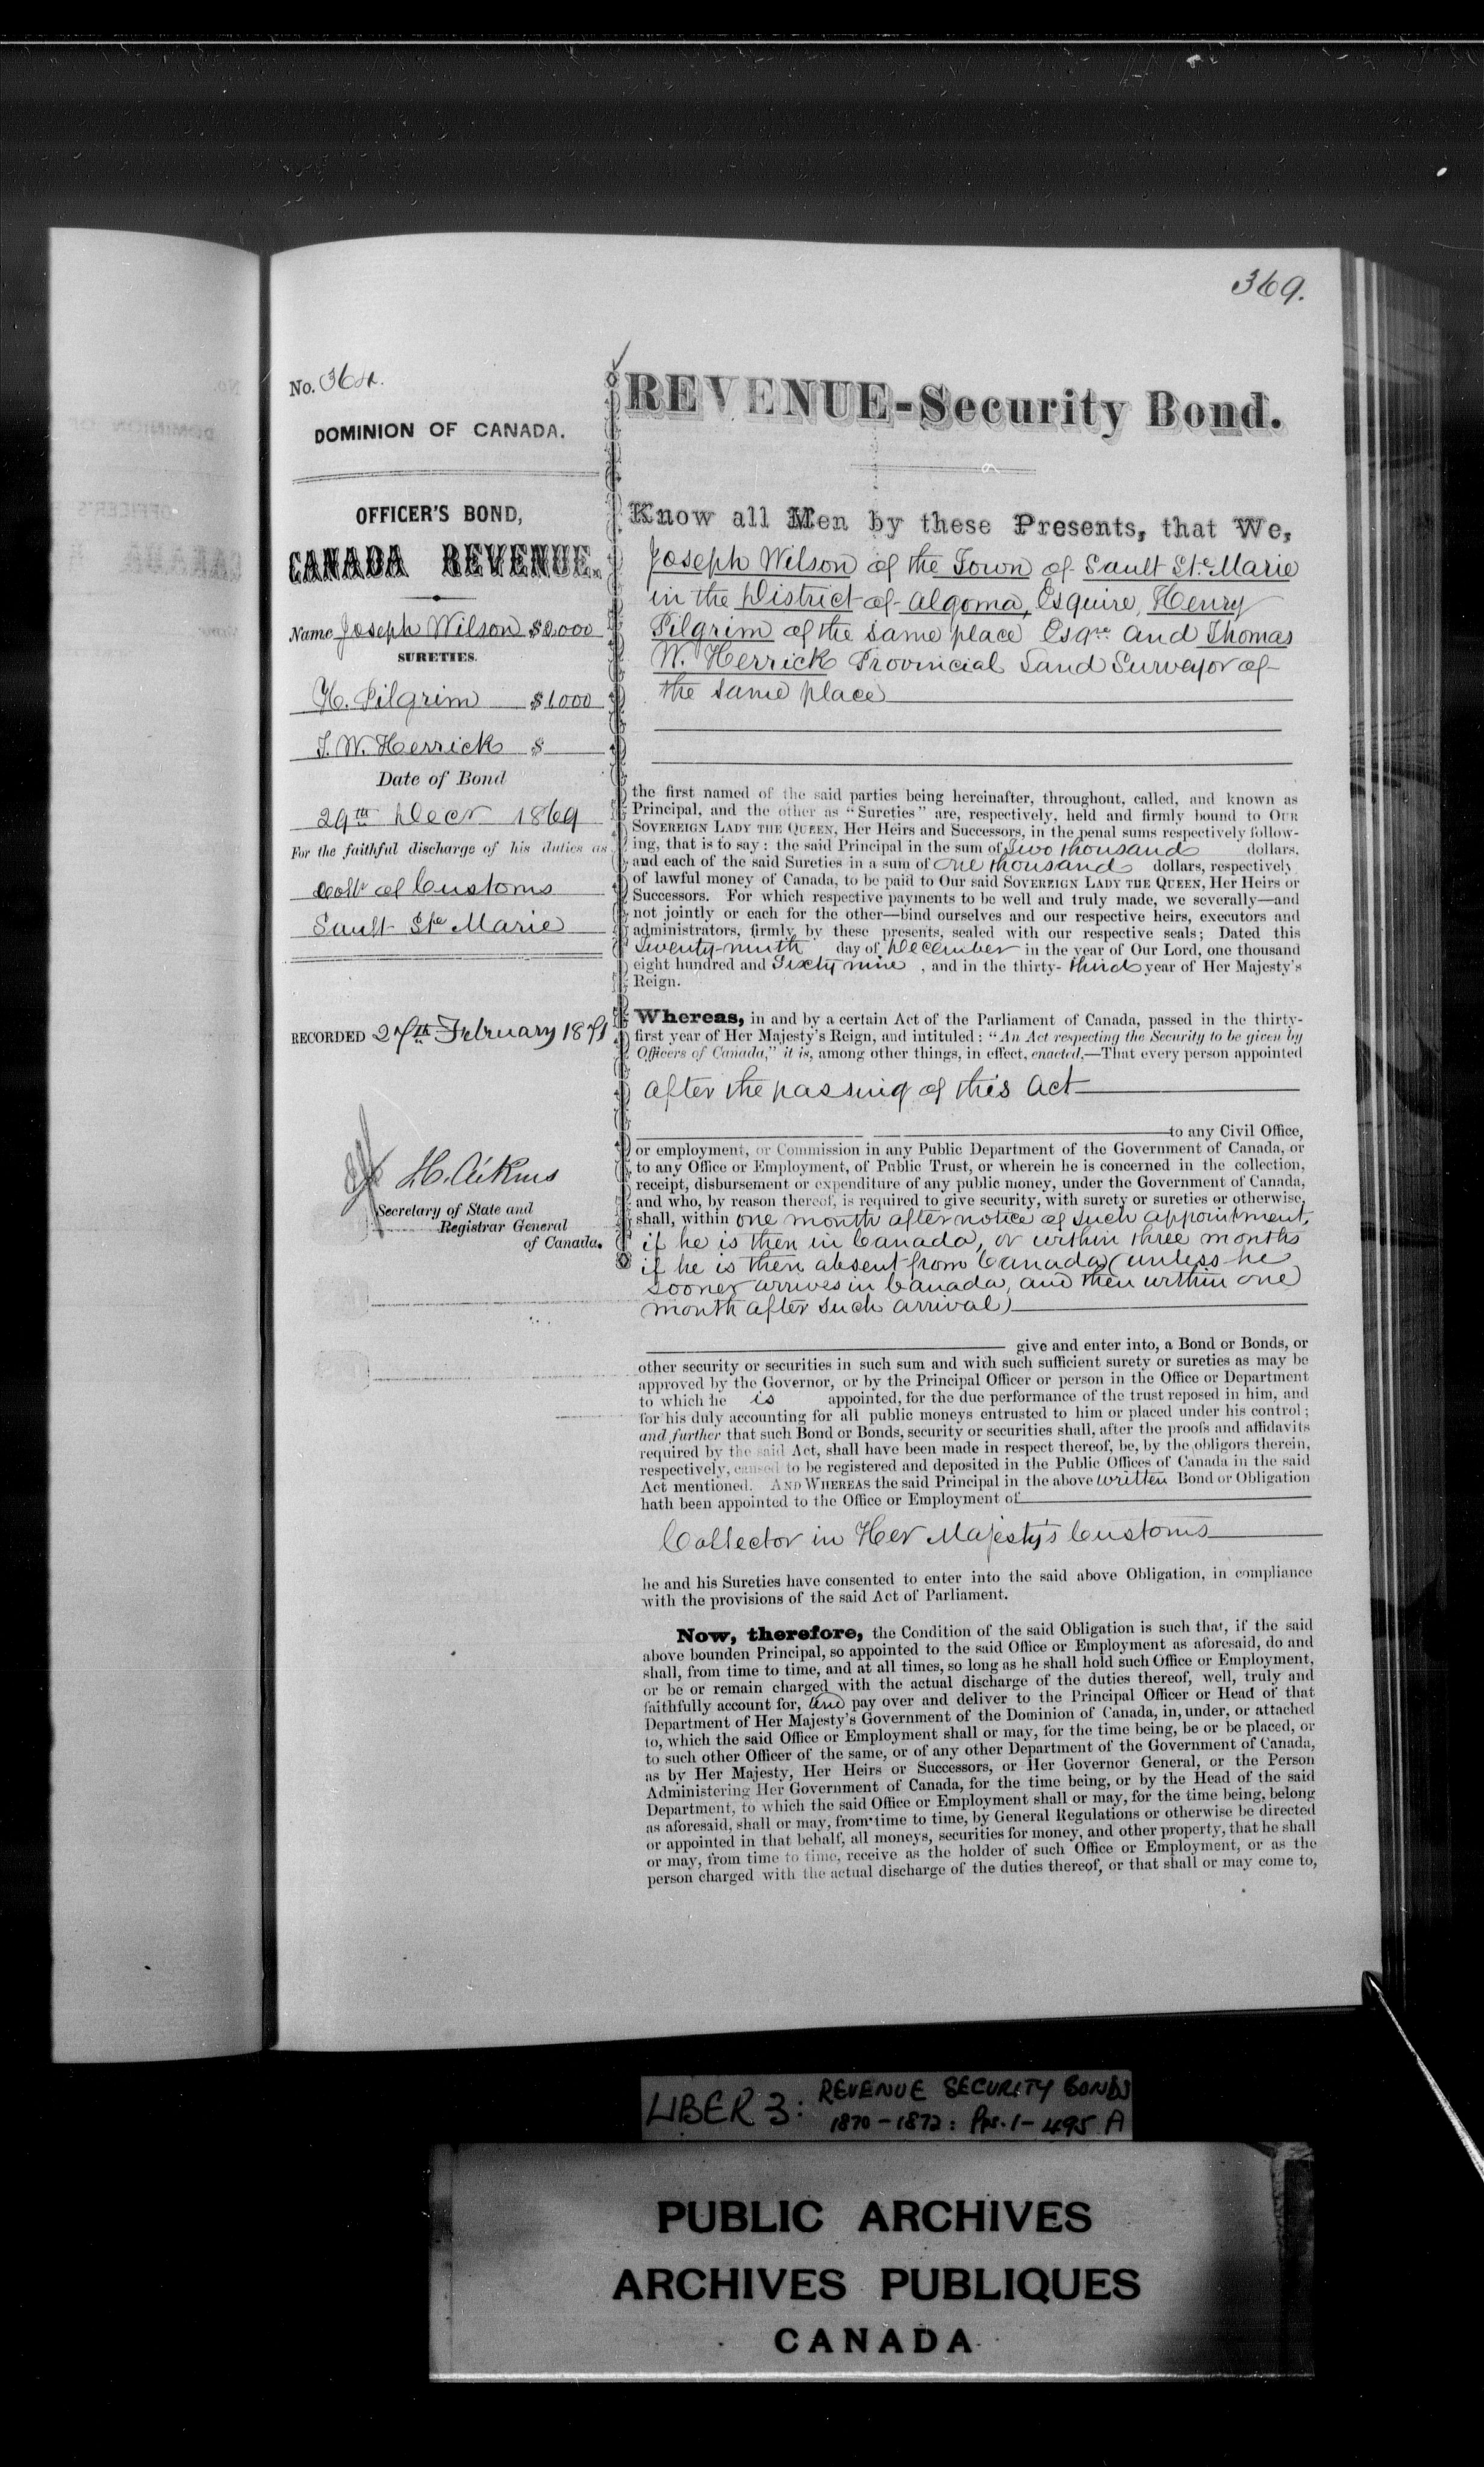 369.
No. 364.
DOMINION OF CANADA.
OFFICER'S BOND,
CANADA REVENUE.
Name Joseph Wilson $2,000
SURETIES.
H. Pilgrim $1000
T. W. Herrick $
Date of Bond
29th Decr 1869
For the faithful discharge of his duties as
Collr of Customs
Sault Ste Marie
RECORDED 27th February 1871
H. Aikins
Secretary of State and
Registrar General
of Canada.
REVENUE-Security Bond.
Know all Men by these Presents, that We,
Joseph Wilson of the Town of Sault Ste Marie
in the District of Algoma, Esquire, Henry
Pilgrim of the same place Esqre and Thomas
W. Herrick Provincial Land Surveyor of
the same place
the first named of the said parties being hereinafter, throughout, called, and known as
Principal, and the other as "Sureties" are, respectively, held and firmly bound to OUR
SOVEREIGN LADY THE QUEEN, Her Heirs and Successors, in the penal sums respectively follow-
ing, that is to say: the said Principal in the sum of Two thousand dollars,
and each of the said Sureties in a sum of One thousand dollars, respectively
of lawful money of Canada, to be paid to Our said SOVEREIGN LADY THE QUEEN, Her Heirs or
Successors. For which respective payments to be well and truly made, we severally—and
not jointly or each for the other—bind ourselves and our respective heirs, executors and
administrators, firmly by these presents, sealed with our respective seals; Dated this
Twenty-ninth day of December in the year of Our Lord, one thousand
eight hundred and Sixty nine , and in the thirty- third year of Her Majesty's
Reign.
Whereas, in and by a certain Act of the Parliament of Canada, passed in the thirty-
first year of Her Majesty's Reign, and intituled: "An Act respecting the Security to be given by
Officers of Canada," it is, among other things, in effect, enacted,—That every person appointed
after the passing of this Act
to any Civil Office,
or employment, or Commission in any Public Department of the Government of Canada, or
to any Office or Employment, of Public Trust, or wherein he is concerned in the collection,
receipt, disbursement or expenditure of any public money, under the Government of Canada,
and who, by reason thereof, is required to give security, with surety or sureties or otherwise,
shall, within one month after notice of such appointment,
if he is then in Canada, or within three months
if he is then absent from Canada (unless he
sooner arrives in Canada, and then within one
month after such arrival)
give and enter into, a Bond or Bonds, or
other security or securities in such sum and with such sufficient surety or sureties as may be
approved by the Governor, or by the Principal Officer or person in the Office or Department
to which he is appointed, for the due performance of the trust reposed in him, and
for his duly accounting for all public moneys entrusted to him or placed under his control;
and further that such Bond or Bonds, security or securities shall, after the proofs and affidavits
required by the said Act, shall have been made in respect thereof, be, by the obligors therein,
respectively, caused to be registered and deposited in the Public Offices of Canada in the said
Act mentioned. AND WHEREAS the said Principal in the above written Bond or Obligation
hath been appointed to the Office or Employment of
Collector in Her Majesty's Customs
he and his Sureties have consented to enter into the said above Obligation, in compliance
with the provisions of the said Act of Parliament.
Now, therefore, the Condition of the said Obligation is such that, if the said
above bounden Principal, so appointed to the said Office or Employment as aforesaid, do and
shall, from time to time, and at all times, so long as he shall hold such Office or Employment,
or be or remain charged with the actual discharge of the duties thereof, well, truly and
faithfully account for, and pay over and deliver to the Principal Officer or Head of that
Department of Her Majesty's Government of the Dominion of Canada, in, under, or attached
to, which the said Office or Employment shall or may, for the time being, be or be placed, or
to such other Officer of the same, or of any other Department of the Government of Canada,
as by Her Majesty, Her Heirs or Successors, or Her Governor General, or the Person
Administering Her Government of Canada, for the time being, or by the Head of the said
Department, to which the said Office or Employment shall or may, for the time being, belong
as aforesaid, shall or may, from time to time, by General Regulations or otherwise be directed
or appointed in that behalf, all moneys, securities for money, and other property, that he shall
or may, from time to time, receive as the holder of such Office or Employment, or as the
person charged with the actual discharge of the duties thereof, or that shall or may come to,
LIBER 3: REVENUE SECURITY BONDS
1870-1872: Pps. 1-495 A
PUBLIC ARCHIVES
ARCHIVES PUBLIQUES
CANADA